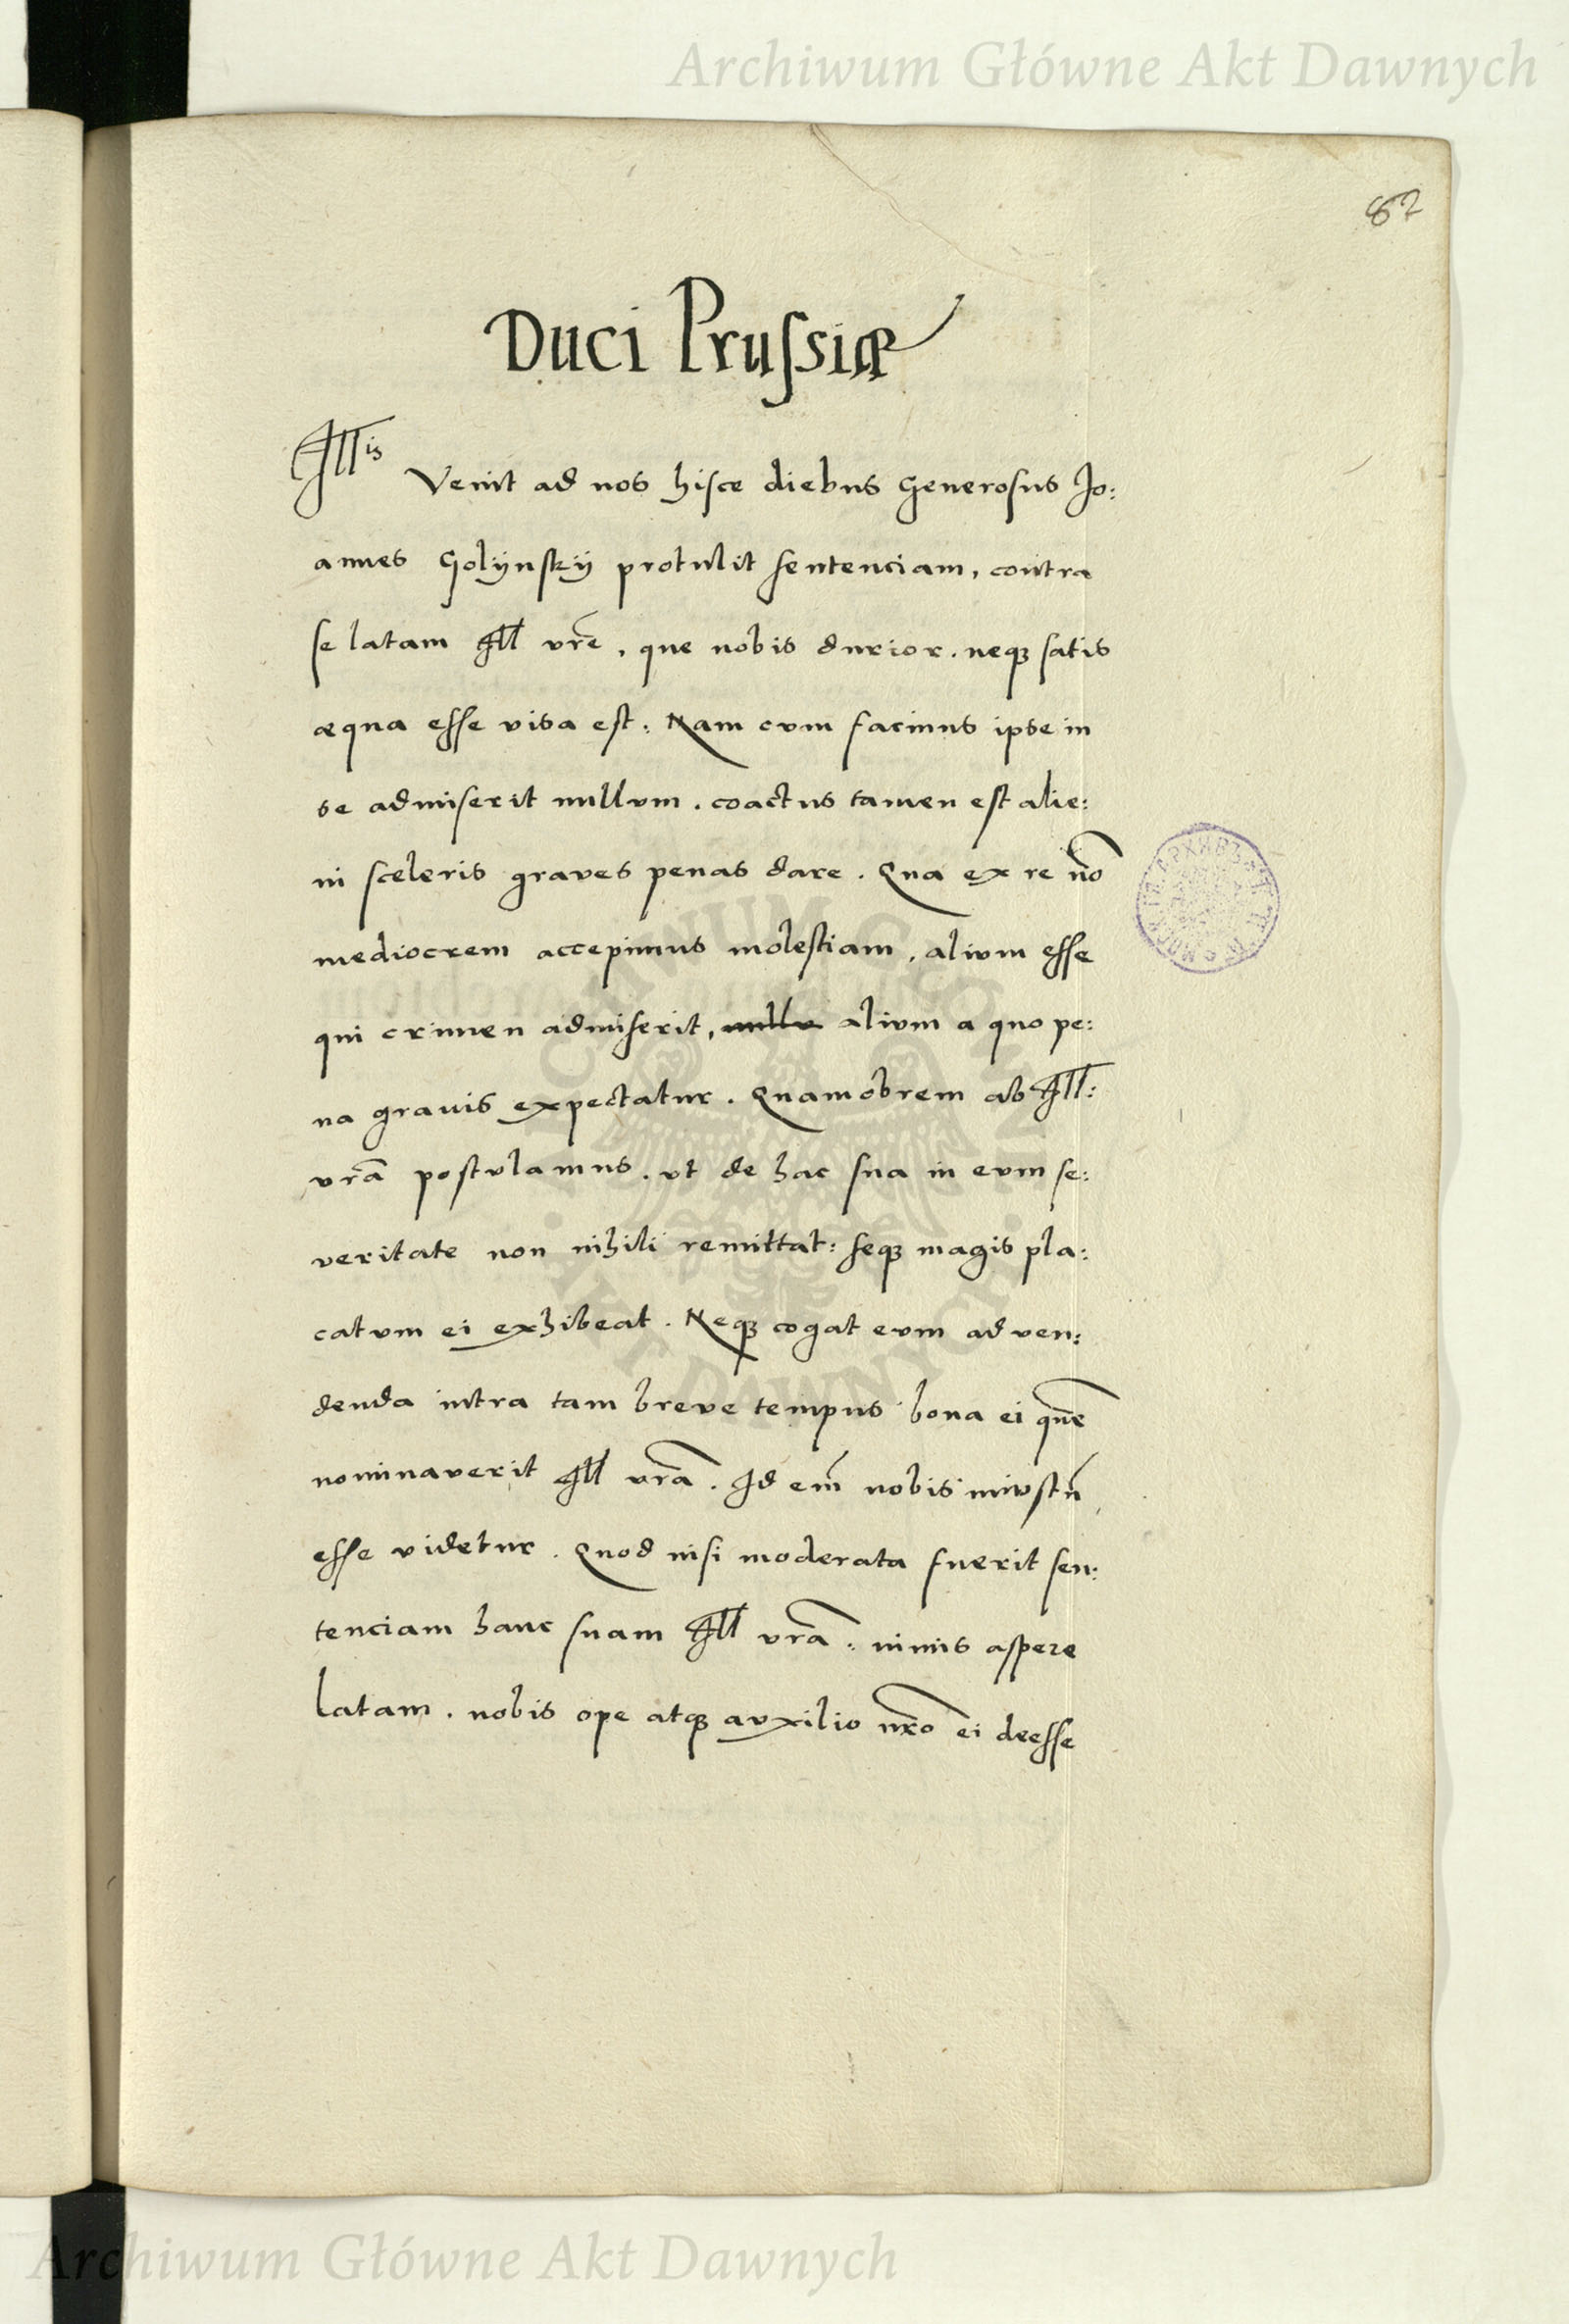 Archiwum Główne Akt Dawnych
62
Duci Prussiæ
Illis Venit ad nos hisce diebus Generosus Jo:
annes Golijnskij protulit sentenciam, contra
se latam Ill vrẽ, que nobis durior. neqꝫ satis
æqua esse visa est: Nam cvm facinus ipse in
se admiserit nullvm. coactus tamen est alie:
ni sceleris graves penas dare. Qua ex re nõ
mediocrem accepimus molestiam, alivm esse
qui crimen admiserit, nullv alivm a quo pe:
na gravis expectatur. Quamobrem ab Ill:
vrã postvlamus. vt de hac sua in evm se:
veritate non nihili remittat: seqꝫ magis pla:
catvm ei exhibeat. Neqꝫ cogat evm ad ven:
denda intra tam breve tempus bona ei quẽ
nominaverit Ill vrã. Id em̃ nobis inivstũ
esse videtur. Quod nisi moderata fuerit sen:
tenciam hanc suam Ill vrã: nimis aspere
latam. nobis ope atqꝫ avxilio nr̃o ei deesse
Archiwum Główne Akt Dawnych